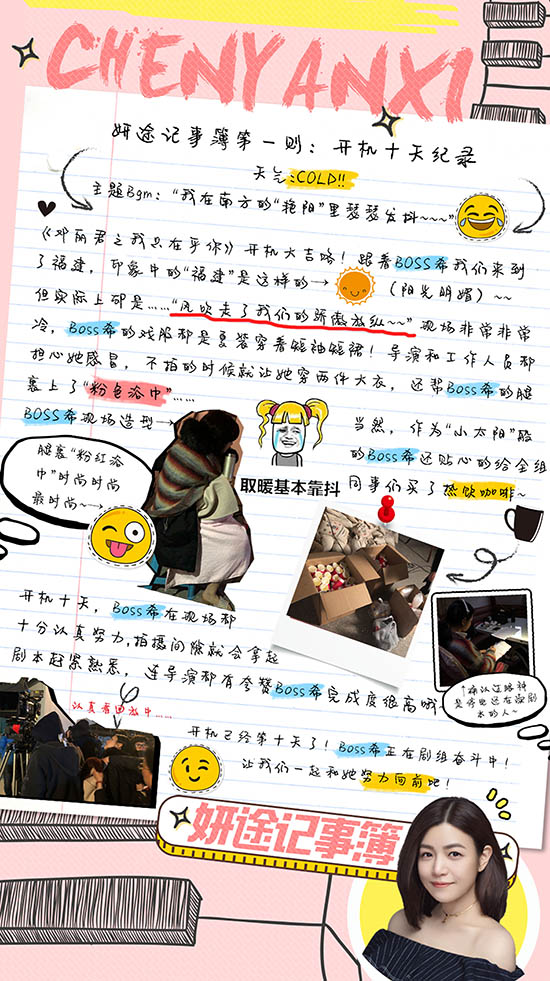 CHENYANXI
妍途记事簿第一则：开机十天纪录
天气：COLD!!
主题Bgm：“我在南方的“艳阳”里瑟瑟发抖~~~”
《邓丽君之我只在乎你》开机大吉咯！跟着BOSS希我们来到
了福建，印象中的“福建”是这样的→（阳光明媚）~~
但实际上却是……“风吹走了我们的骄傲放纵~~”现场非常非常
冷，Boss希的戏服都是夏装穿着短袖短裙！导演和工作人员都
担心她感冒，不拍的时候就让她穿两件大衣，还帮Boss希的腿
裹上了“粉色浴巾”……
BOSS希现场造型→
腿裹“粉红浴
巾”时尚时尚
最时尚~→
取暖基本靠抖
当然，作为“小太阳”般
的Boss希还贴心的给全组
同事们买了热饮咖啡~
开机十天，Boss希在现场都
十分认真努力，拍摄间隙就会拿起
剧本赶紧熟悉，连导演都有夸赞Boss希完成度很高哦
↑确认过眼神
是停电还在读剧
本的人~
认真看回放中……
开机已经第十天了！Boss希正在剧组奋斗中！
让我们一起和她努力向前吧！
妍途记事簿